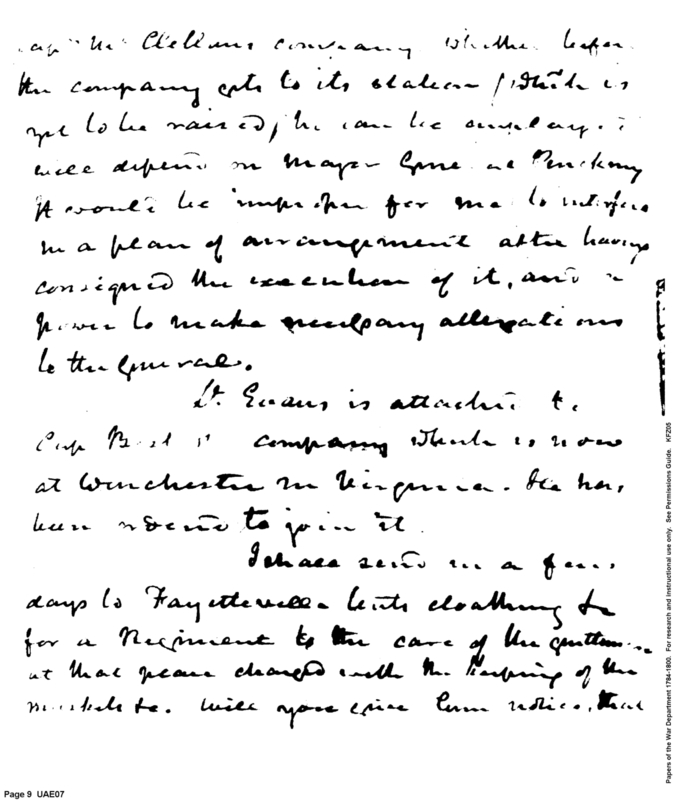 Mc Clellans company. Whether before
the company gets to its station (which is
yet to be raised) he can be employed
will depend on Major General Pinckney
It would be improper for me to interfere
in a plan of arrangement after having
consigned the execution of it, and a
power to make necessary alterations
to the General.
Lt. Evans is attached to
Cap company which is now
at Winchester in Virginia. He has
been ordered to join it.
I shall send in a few
days to Fayetteville tents cloathing &c
for a Regiment to the care of the gentleman
at that place charged with the keeping of the
muskets &c. Will you give him notice, that
Page 9 UAE07
Papers of the War Department 1784-1800. For research and instructional use only. See Permissions Guide. KFZ05